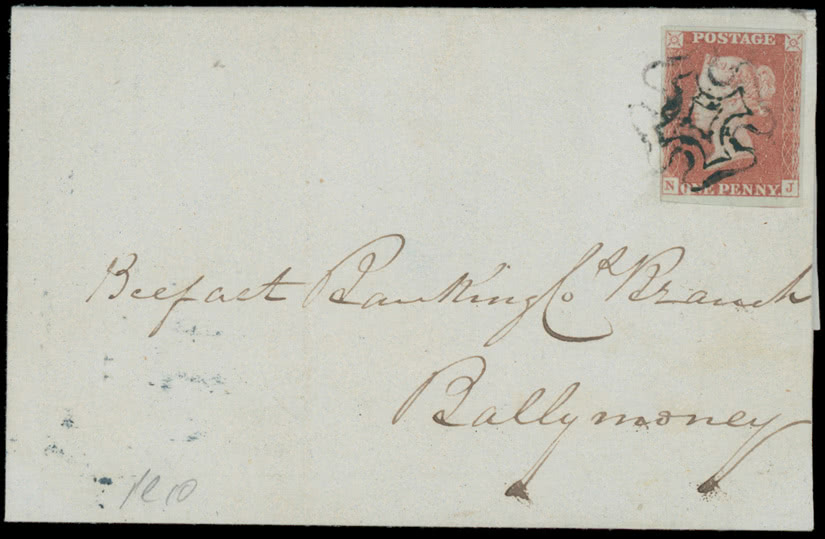 POSTAGE
N ONE PENNY. J
Belfast Banking Co. Branch
Ballymoney